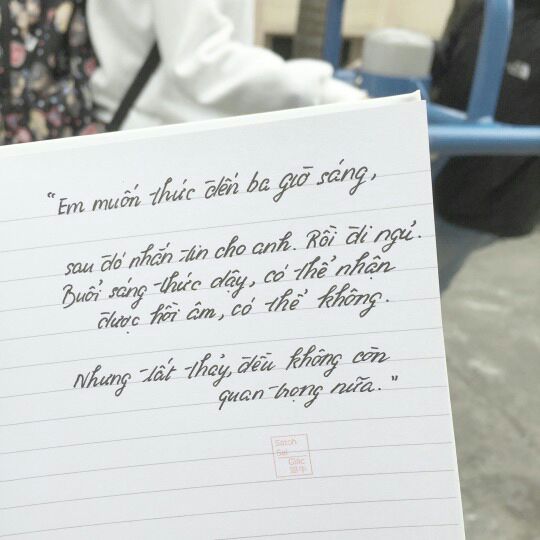 “Em muốn thức đến ba giờ sáng,
sau đó nhắn tin cho anh. Rồi đi ngủ.
Buổi sáng thức dậy, có thể nhận
được hồi âm, có thể không.
Nhưng tất thảy, đều không còn
quan trọng nữa.”